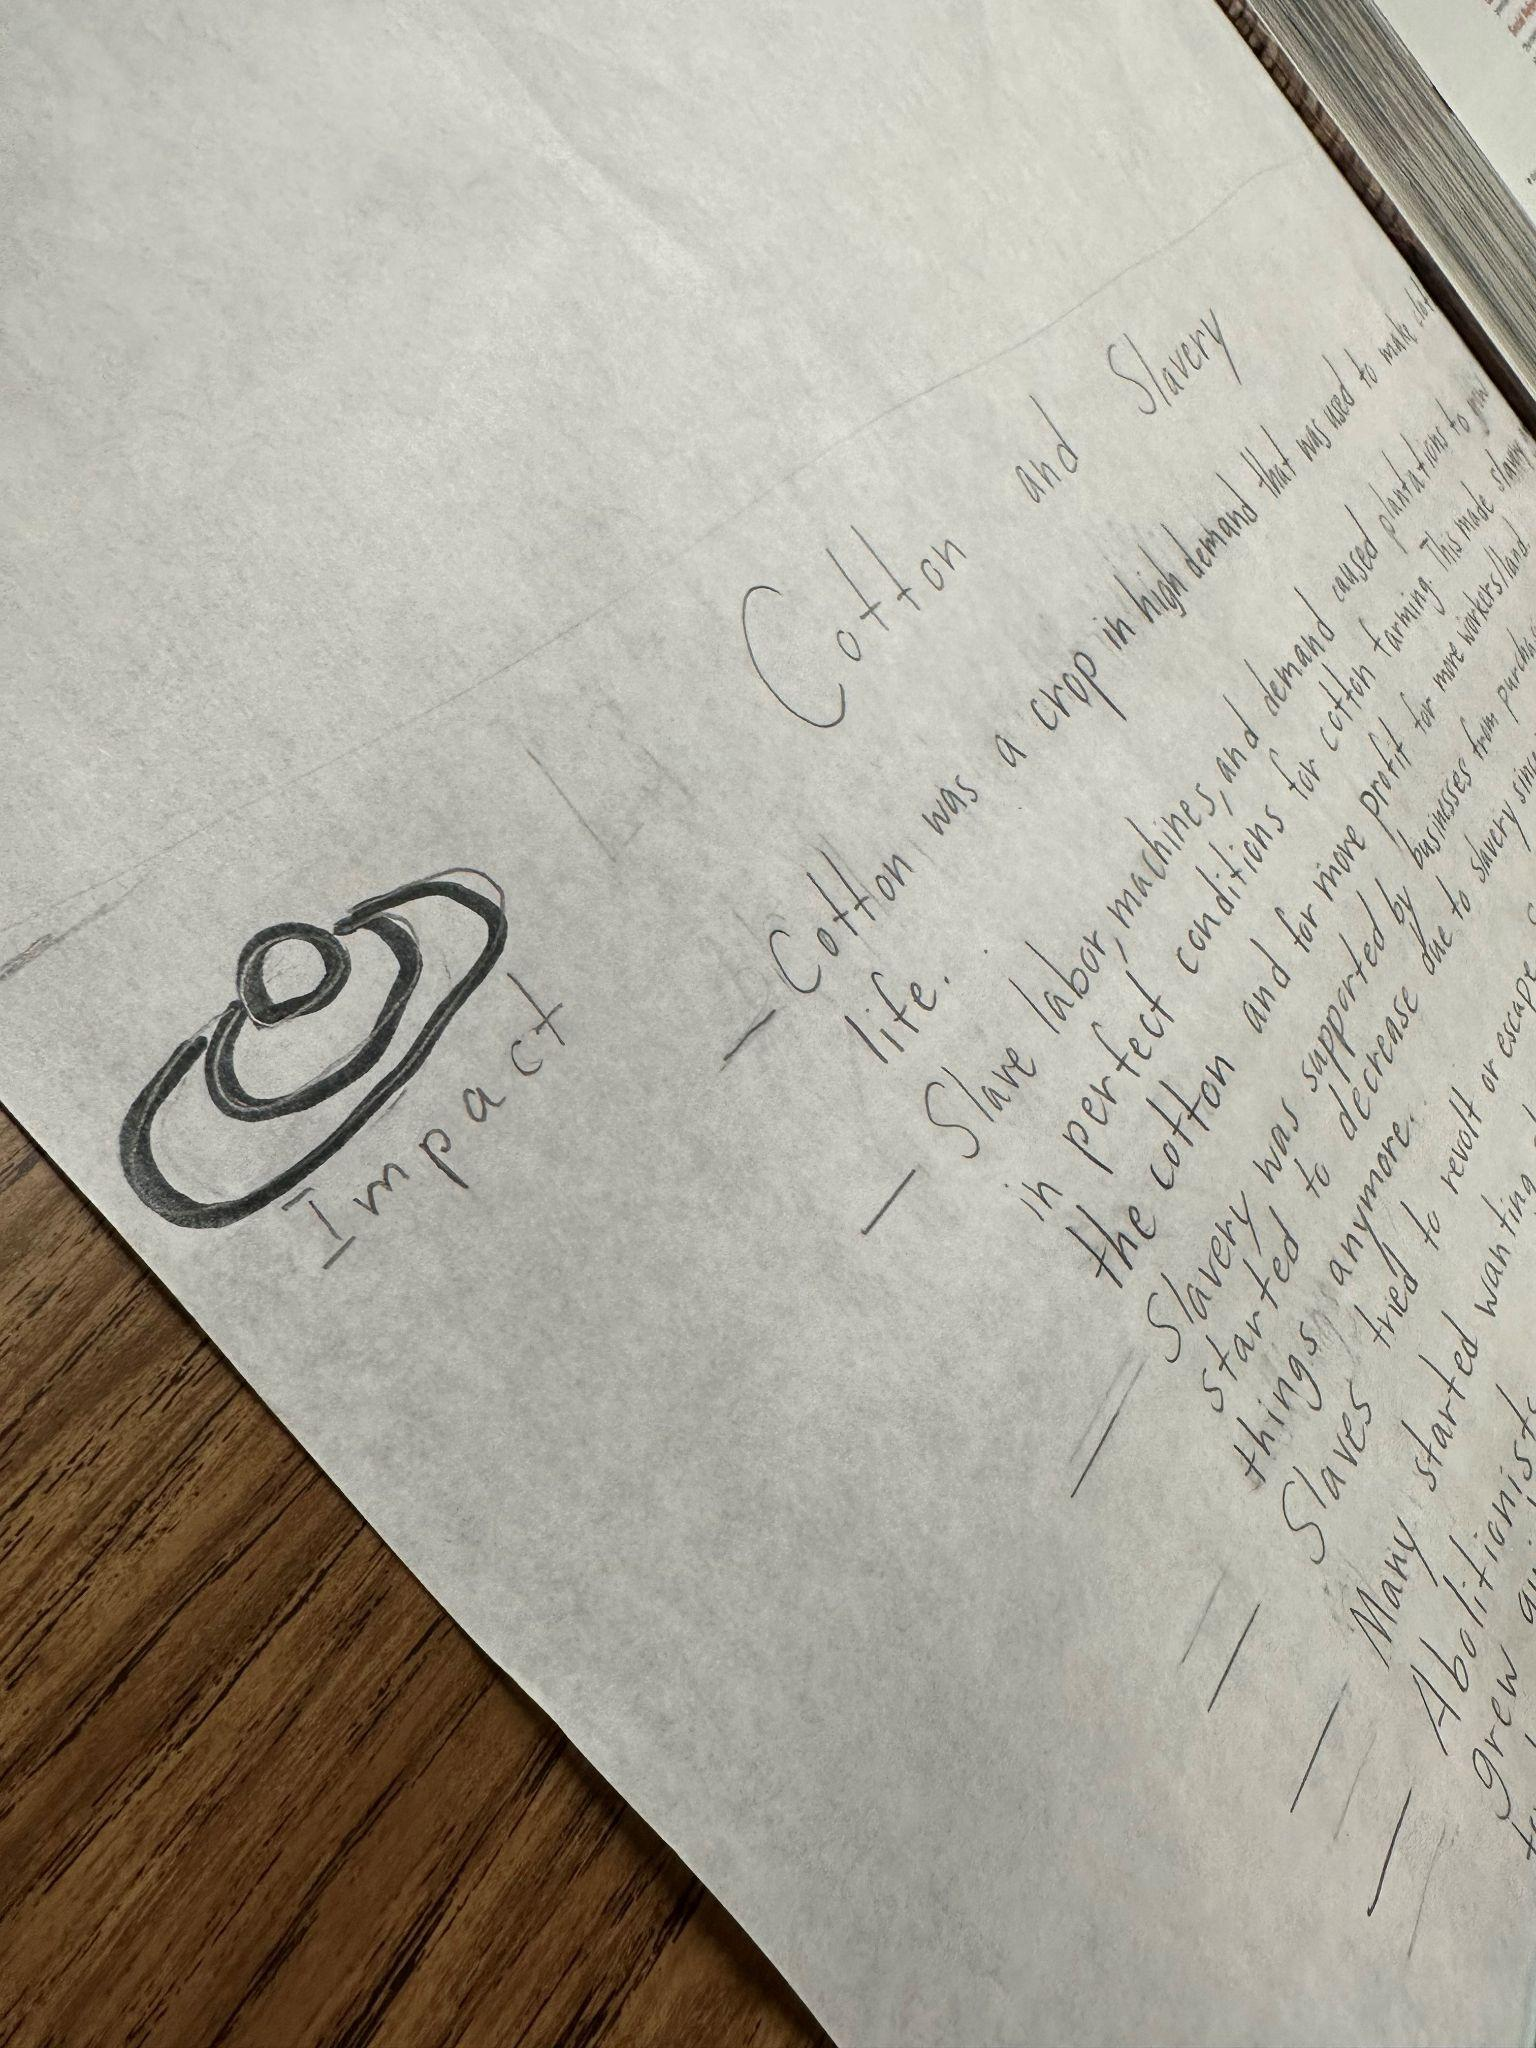 Impact
Cotton and Slavery
- Cotton was a crop in high demand that was used to make
life.
- Slave labor, machines, and demand caused plantations to
in perfect conditions for cotton farming. This made slavery
the cotton and for more profit for more workers/land.
- Slavery was supported by businesses from
started to decrease due to slavery since
things anymore.
- Slaves tried to revolt or escape
- Many started wanting
- Abolitionists
grew